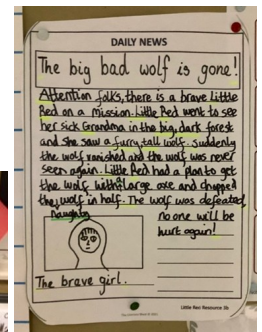 DAILY NEWS
The big bad wolf is gone!
Attention folks, there is a brave Little
Red on a mission. Little Red went to see
her sick Grandma in the big, dark forest
and she saw a furry, tall wolf. suddenly
the wolf vanished and the wolf was never
seen again. Little Red had a plan to get
the wolf with a large axe and chopped
the wolf in half. The wolf was defeated,
naughty
no one will be
hurt again!
The brave girl.
Little Red Resource 3b